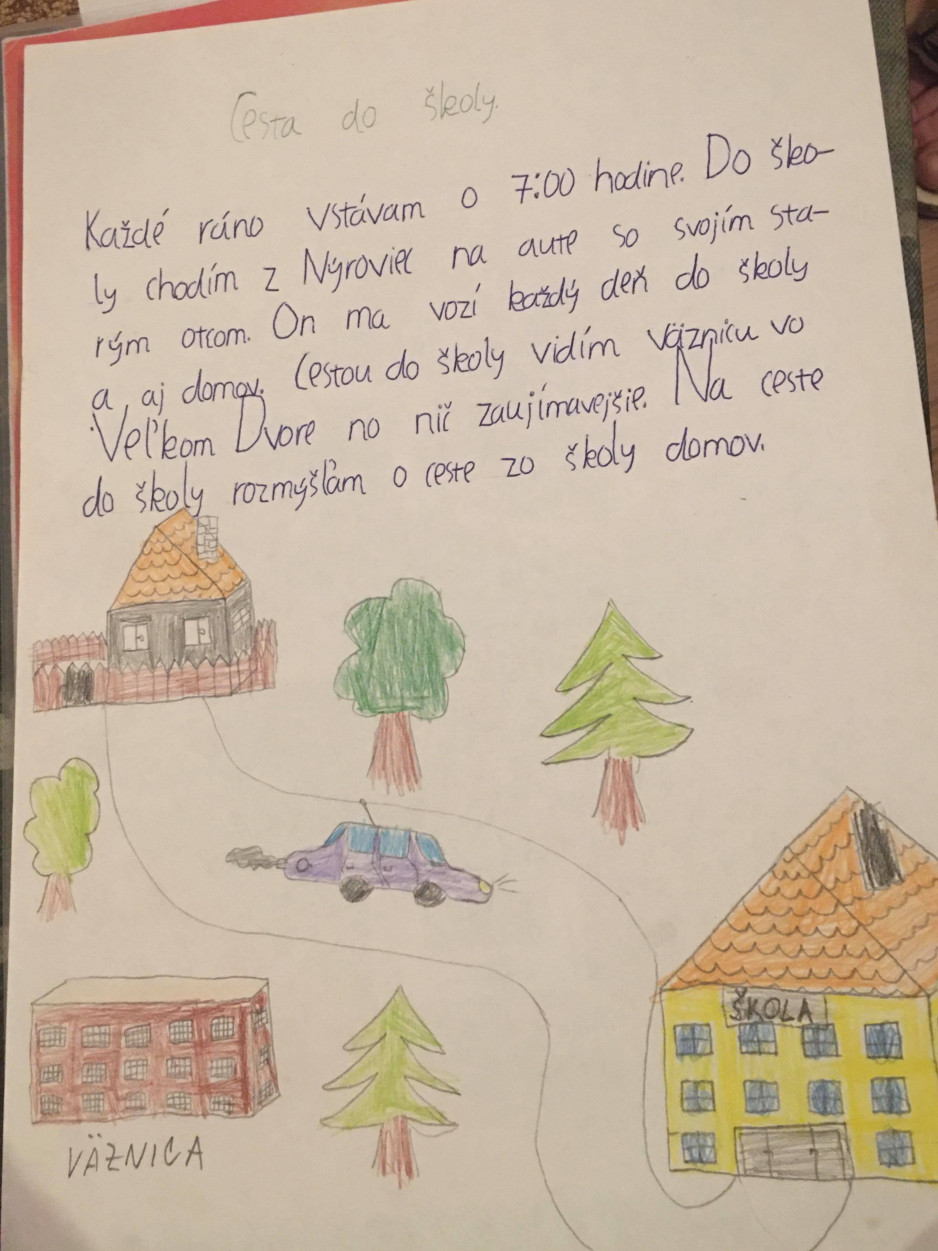 Cesta do školy.
Každé ráno vstávam o 7:00 hodine. Do ško-
ly chodím z Nýroviec na aute so svojím sta-
rým otcom. On ma vozí každý deň do školy
a aj domov. Cestou do školy vidím väznicu vo
Veľkom Dvore no nič zaujímavejšie. Na ceste
do školy rozmýšľam o ceste zo školy domov.
ŠKOLA
VÄZNICA